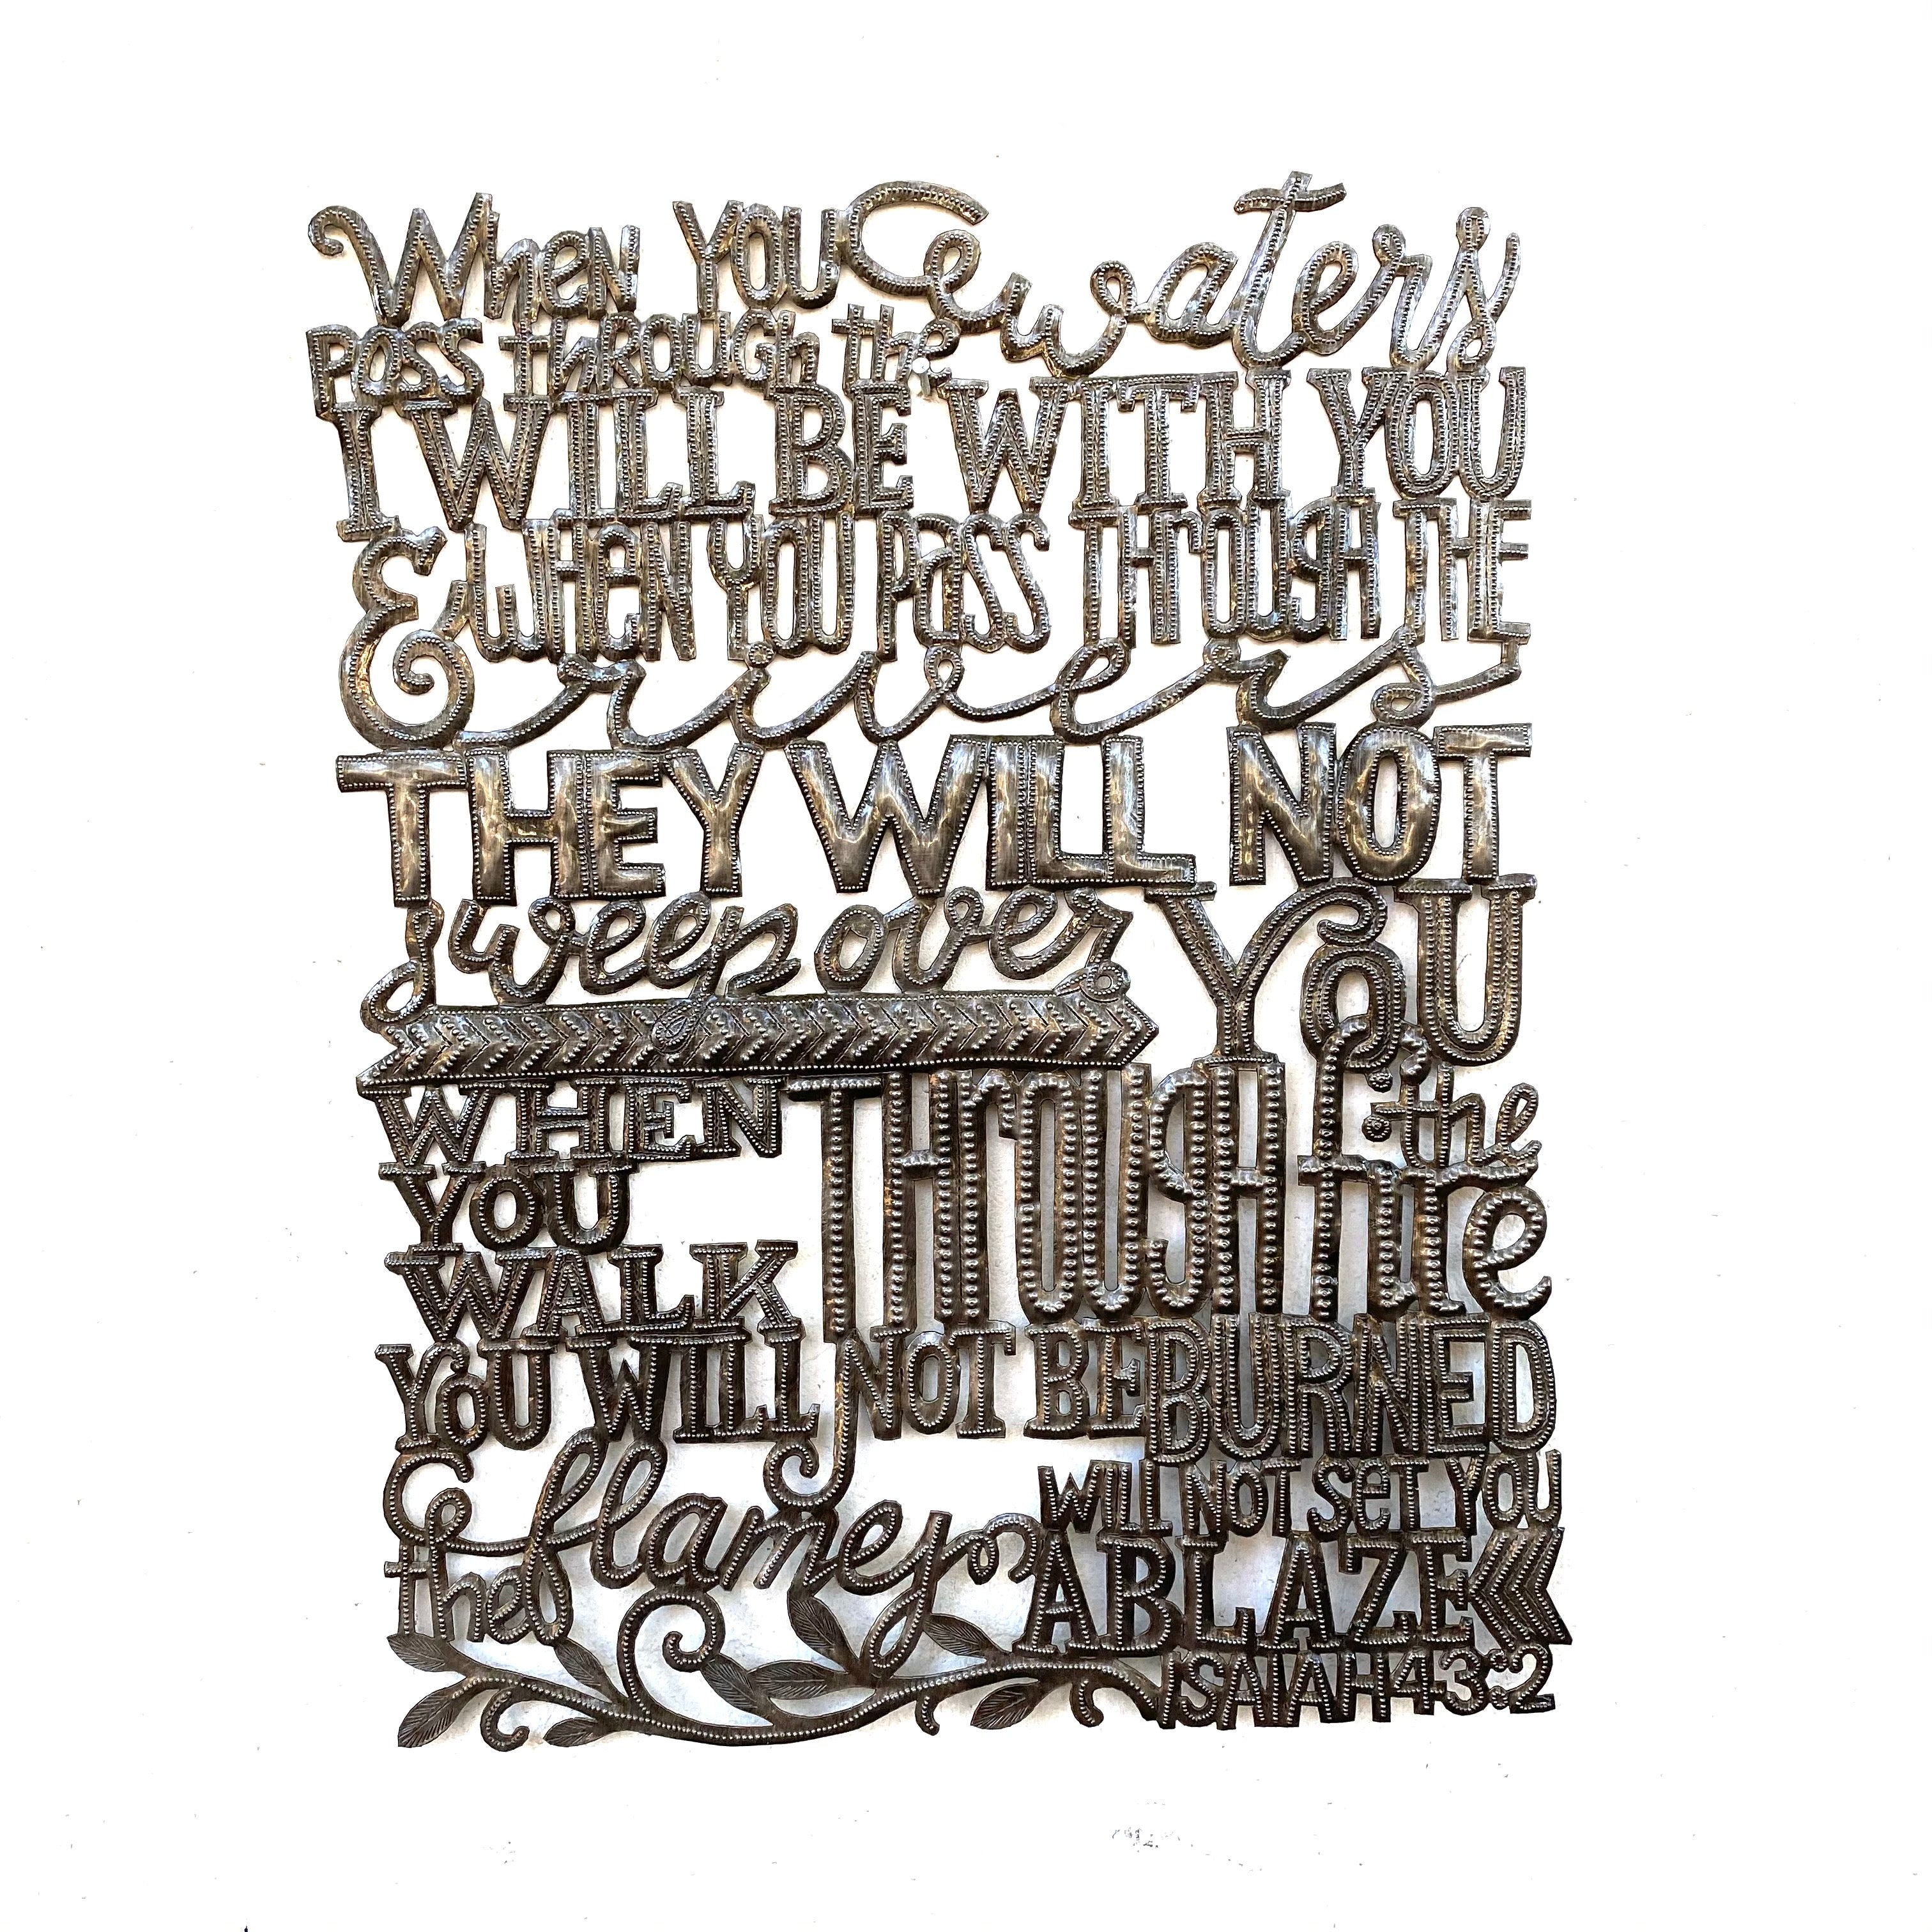 When YOU waters
pass through the
I WILL BE WITH YOU
& WHEN YOU PASS THROUGH THE
rivers
THEY WILL NOT
sweep over YOU
WHEN
YOU
WALK
THROUGH the
fire
YOU WILL NOT BE BURNED
the flames
WILL NOT SET YOU
ABLAZE
ISAIAH 43:2